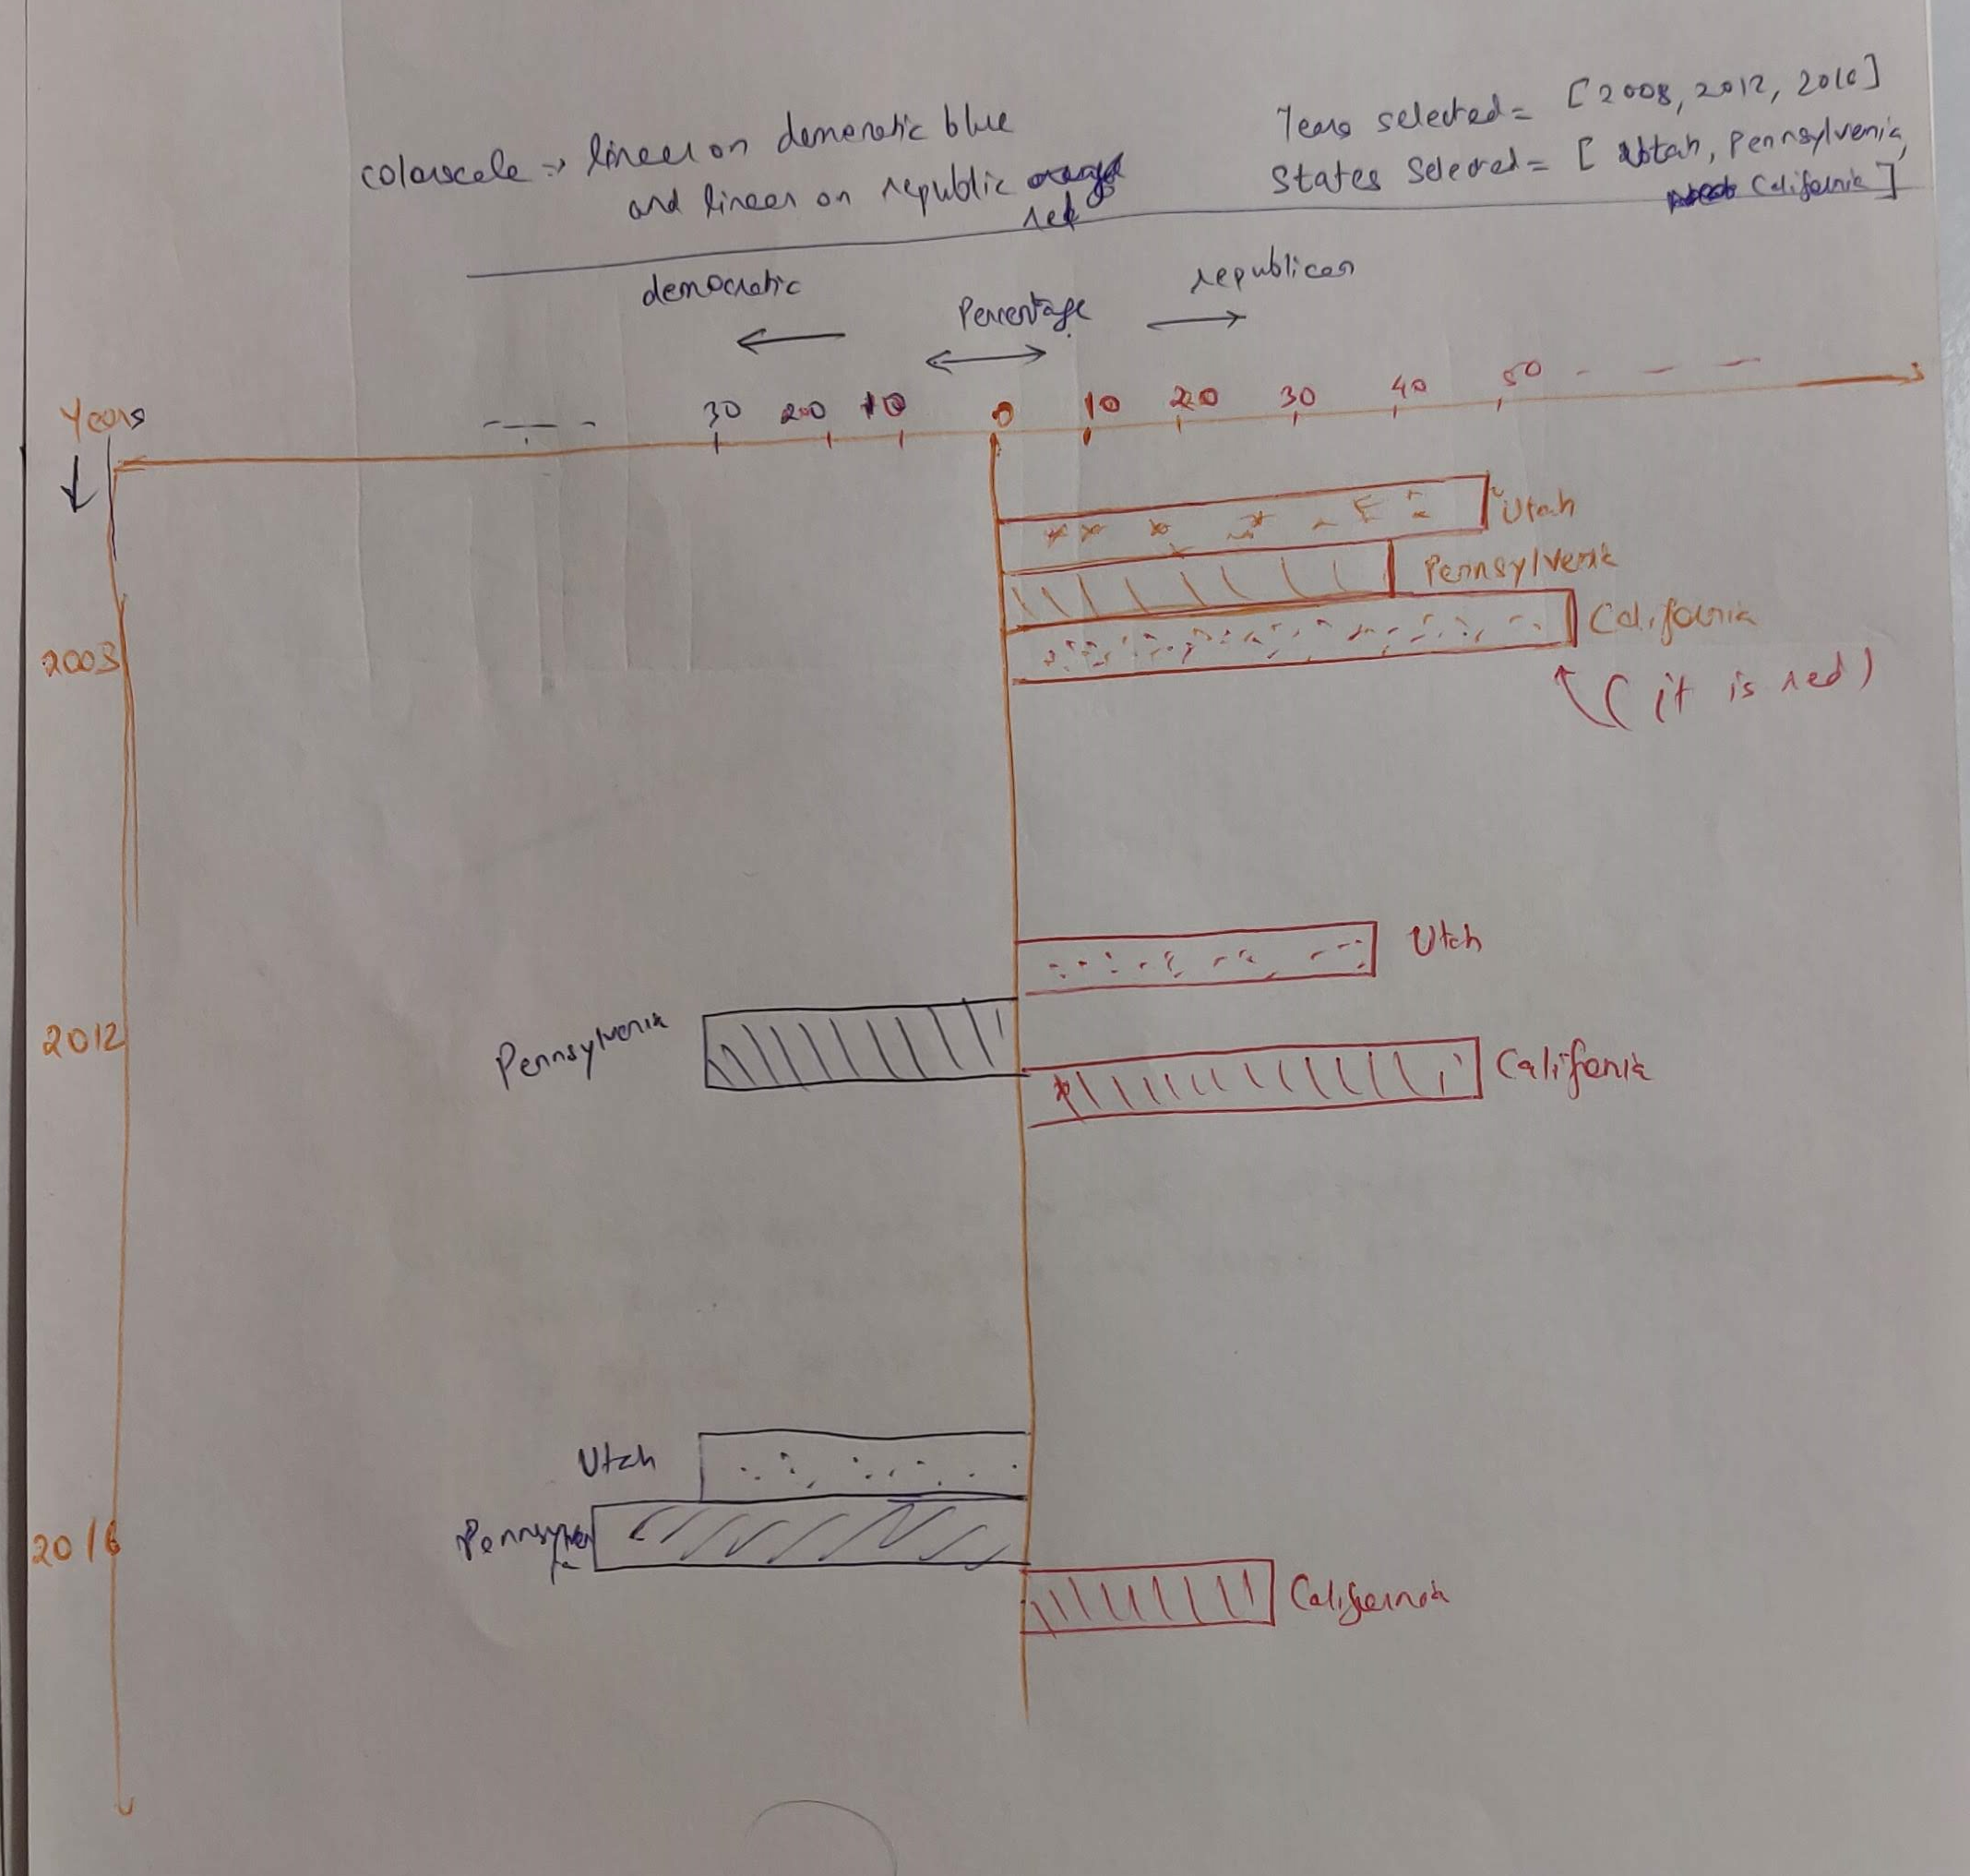 colorscale → linear on democratic blue
and linear on republic
red
Years selected = [2008, 2012, 2016]
States Selected = [Utah, Pennsylvenia,
California]
democratic
Percentage
republican
Years
30 20 10 0 10 20 30 40 50
Utah
Pennsylvenia
California
2003
(it is red)
Utah
Pennsylvenia
2012
California
Utah
2016
California